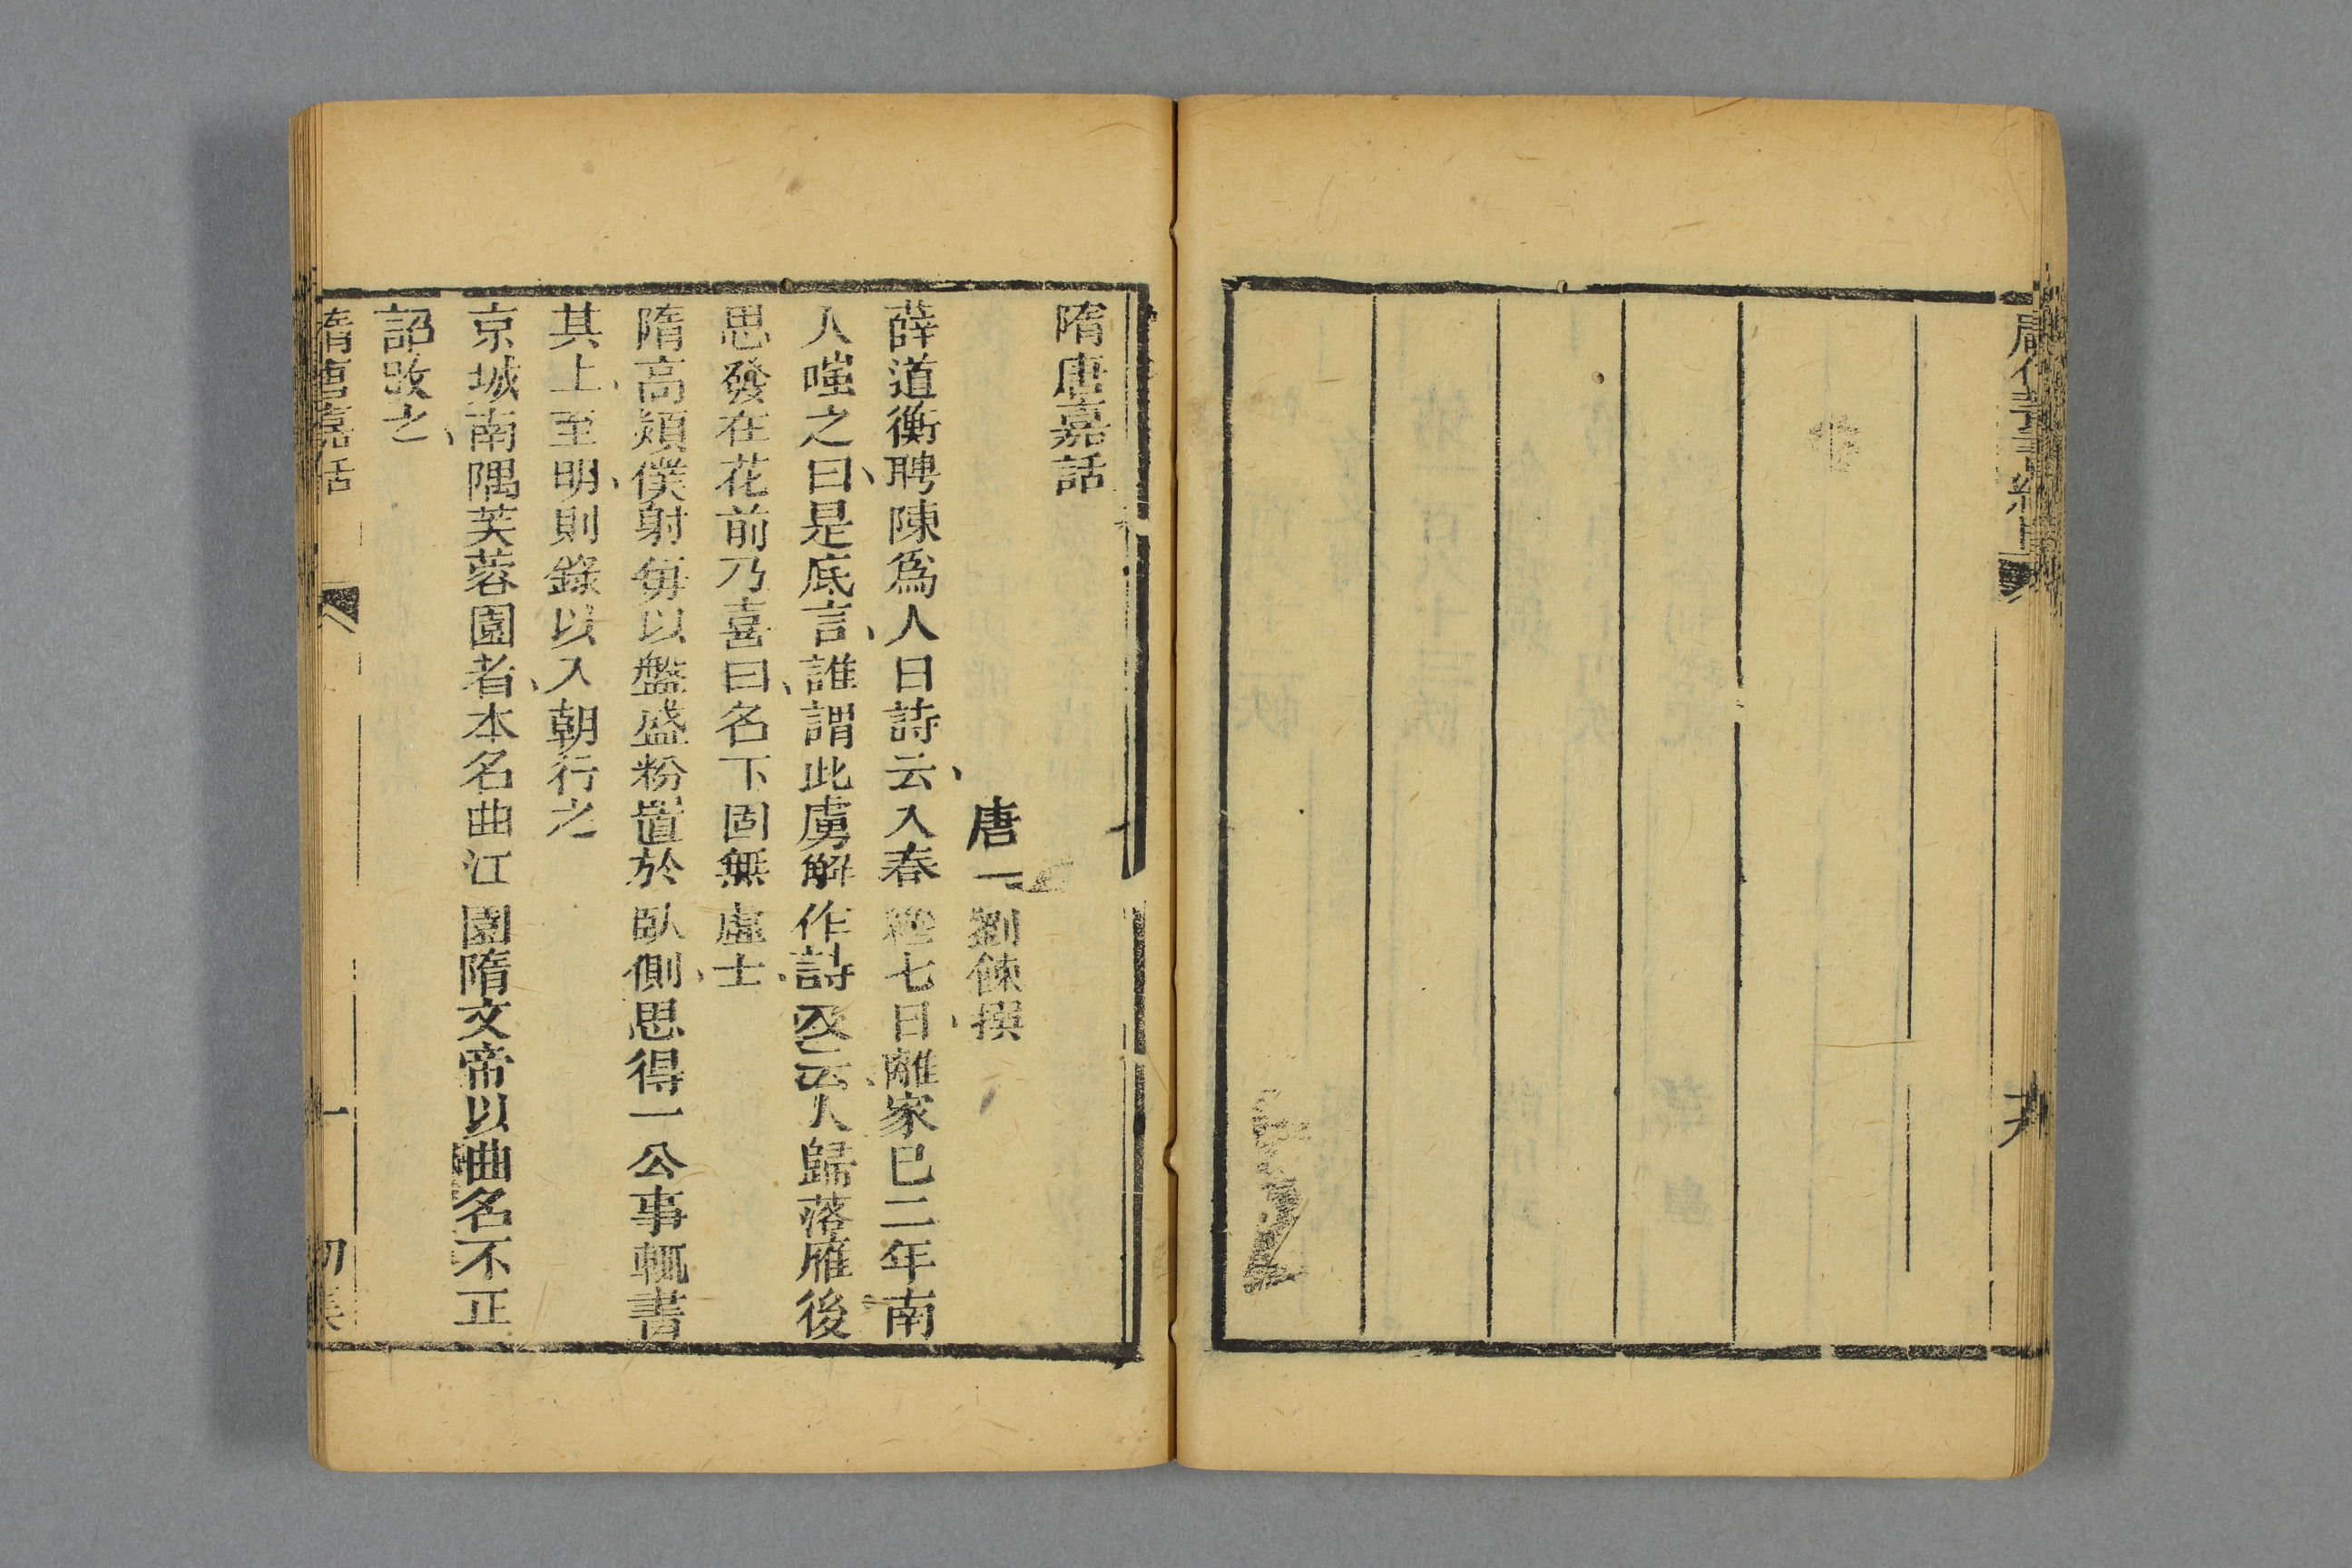 隋唐嘉話
唐 劉餗撰
薛道衡聘陳爲人日詩云、入春纔七日、離家已二年南
人嗤之曰、是底言、誰謂此虜解作詩及云、人歸落雁後
思發在花前乃喜曰、名下固無虛士、
隋高熲僕射每以盤盛粉置於臥側、思得一公事輒書
其上、至明、則錄以入朝行之
京城南隅芙蓉園者、本名曲江園隋文帝以曲名不正
詔改之、
隋唐嘉話 一 初集